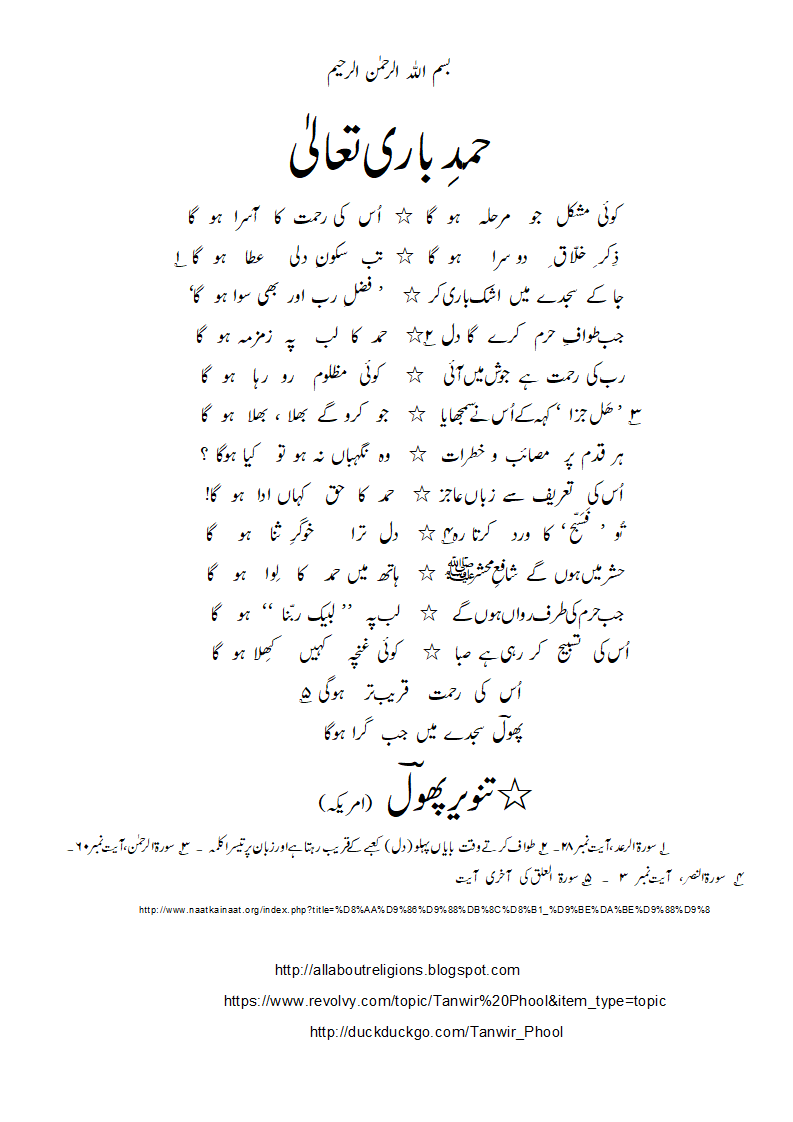 بسم اللہ الرحمٰن الرحیم
حمدِ باری تعالیٰ
کوئی مشکل جو مرحلہ ہو گا ☆ اُس کی رحمت کا آسرا ہو گا
ذِکرِ خلّاقِ دوسرا ہو گا ☆ تب سکونِ دلی عطا ہو گا ۱؎
جا کے سجدے میں اشک باری کر ☆ ’ فضلِ رب اور بھی سوا ہو گا‘
جب طوافِ حرم کرے گا دل ۲؎☆ حمد کا لب پہ زمزمہ ہو گا
رب کی رحمت ہے جوش میں آئی ☆ کوئی مظلوم رو رہا ہو گا
۳؎ ’ ھَل جزا ‘ کہہ کے اُس نے سمجھایا ☆ جو کرو گے بھلا ، بھلا ہو گا
ہر قدم پر مصائب و خطرات ☆ وہ نگہباں نہ ہو تو کیا ہوگا ؟
اُس کی تعریف سے زباں عاجز ☆ حمد کا حق کہاں ادا ہو گا!
تُو ’ فَسَبِّح‘ کا ورد کرتا رہ ۴؎ ☆ دل ترا خوگرِ ثنا ہو گا
حشر میں ہوں گے شافعِ محشر ﷺ ☆ ہاتھ میں حمد کا لِوا ہو گا
جب حرم کی طرف رواں ہوں گے ☆ لب پہ ’’ لبیک ربّنا ‘‘ ہو گا
اُس کی تسبیح کر رہی ہے صبا ☆ کوئی غنچہ کہیں کھِلا ہو گا
اُس کی رحمت قریب تر ہوگی ۵؎
پھولؔ سجدے میں جب گرا ہوگا
☆ تنویر پھولؔ (امریکہ)
۱؎ سورۃ الرعد،آیت نمبر ۲۸۔ ۲؎ طواف کرتے وقت بایاں پہلو (دل) کعبے کے قریب رہتا ہے اور زبان پر تیسرا کلمہ ۔ ۳؎ سورۃ الرحمٰن،آیت نمبر ۶۰۔
۴؎ سورۃ النصر، آیت نمبر ۳ ۔ ۵؎ سورۃ العلق کی آخری آیت
http://www.naatkainaat.org/index.php?title=%D8%AA%D9%86%D9%88%DB%8C%D8%B1_%D9%BE%DA%BE%D9%88%D9%8
http://allaboutreligions.blogspot.com
https://www.revolvy.com/topic/Tanwir%20Phool&item_type=topic
http://duckduckgo.com/Tanwir_Phool